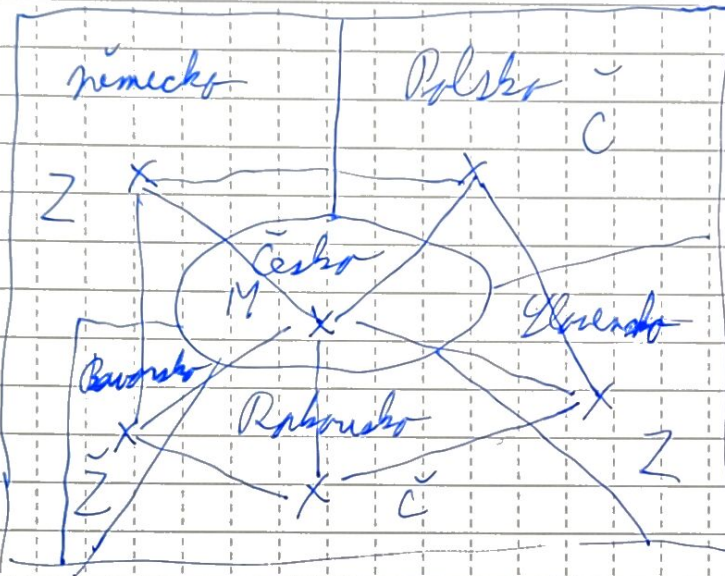 německo
Polsko
Č
Z
Česko
M
Slovensko
Bavorsko
Rakousko
Z
Ž
Č